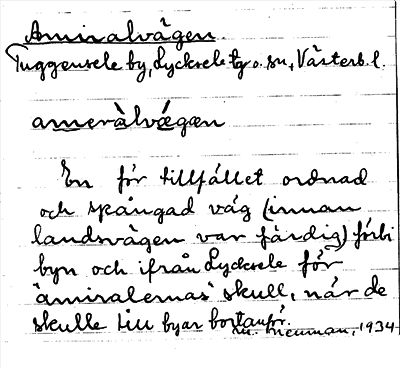 Amiralvägen.
Tuggensele by, Lycksele tg o. sn, Västerb. l.
ameràlvǽgæn
En för tillfället ordnad
och spångad väg (innan
landsvägen var färdig) förbi
byn och ifrån Lycksele för
"amiralernas" skull, när de
skulle till byar bortanför.
M. Neuman, 1934